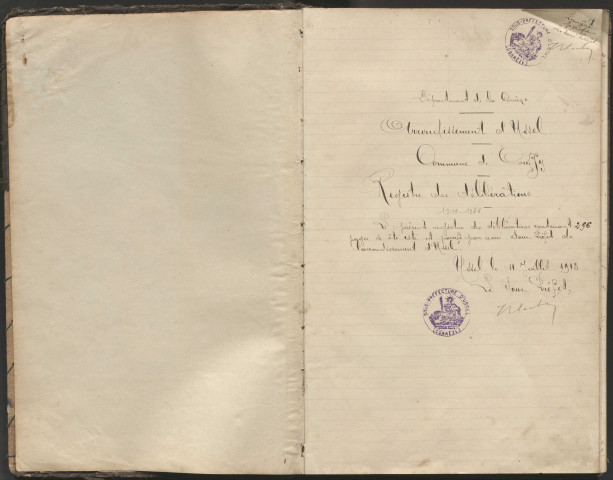 Département de la Corrèze
Arrondissement d'Ussel
Commune de
Registre des délibérations
Le présent registre des délibérations contenant 296
pages a été coté et paraphé par nous Sous-Préfet de
l'arrondissement d'Ussel.
Ussel le 11 Juillet 1913
Le Sous Préfet,
SOUS-PRÉFECTURE D'USSEL
(CORRÈZE)